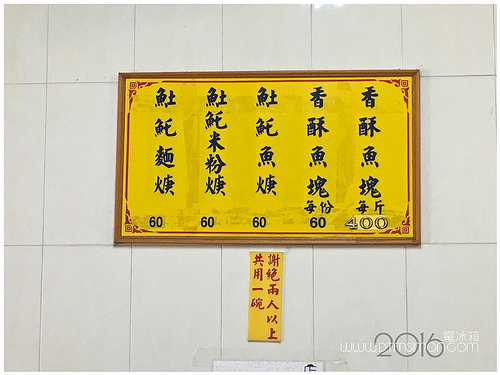 香酥魚塊
每斤
400
香酥魚塊
每份
60
𩵚魠魚焿
60
𩵚魠米粉焿
60
𩵚魠麵焿
60
謝絕兩人以上
共用一碗
2016
電冰箱